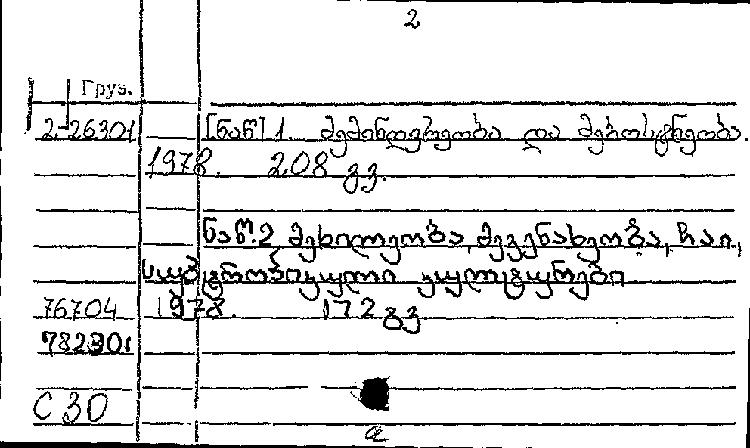 2
Груз.
2-26301 [ნაწ] 1. მემინდვრეობა და მებოსტნეობა.
1978. 208 გვ.
ნაწ. 2 მეხილეობა, მევენახეობა, ჩაი,
სუბტროპიკული კულტურები
76704 1978. 172 გვ
782301
C 30